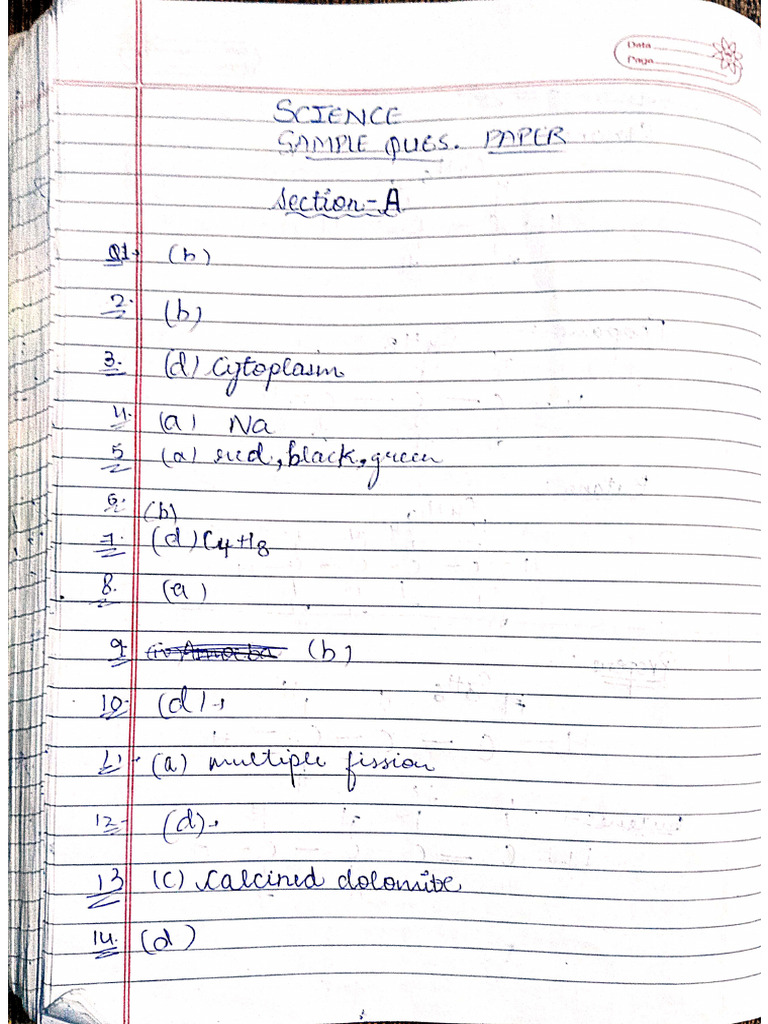 Data
Page
SCIENCE
SAMPLE QUES. PAPER
Section-A
Q1. (b)
2. (b)
3. (d) Cytoplasm
4. (a) Na
5 (a) red, black, green
6. (b)
7. (d) C4H8
8. (a)
9. (b)
10. (d).
11. (a) multiple fission
12. (d).
13 (c) Calcined dolomite
14. (d)